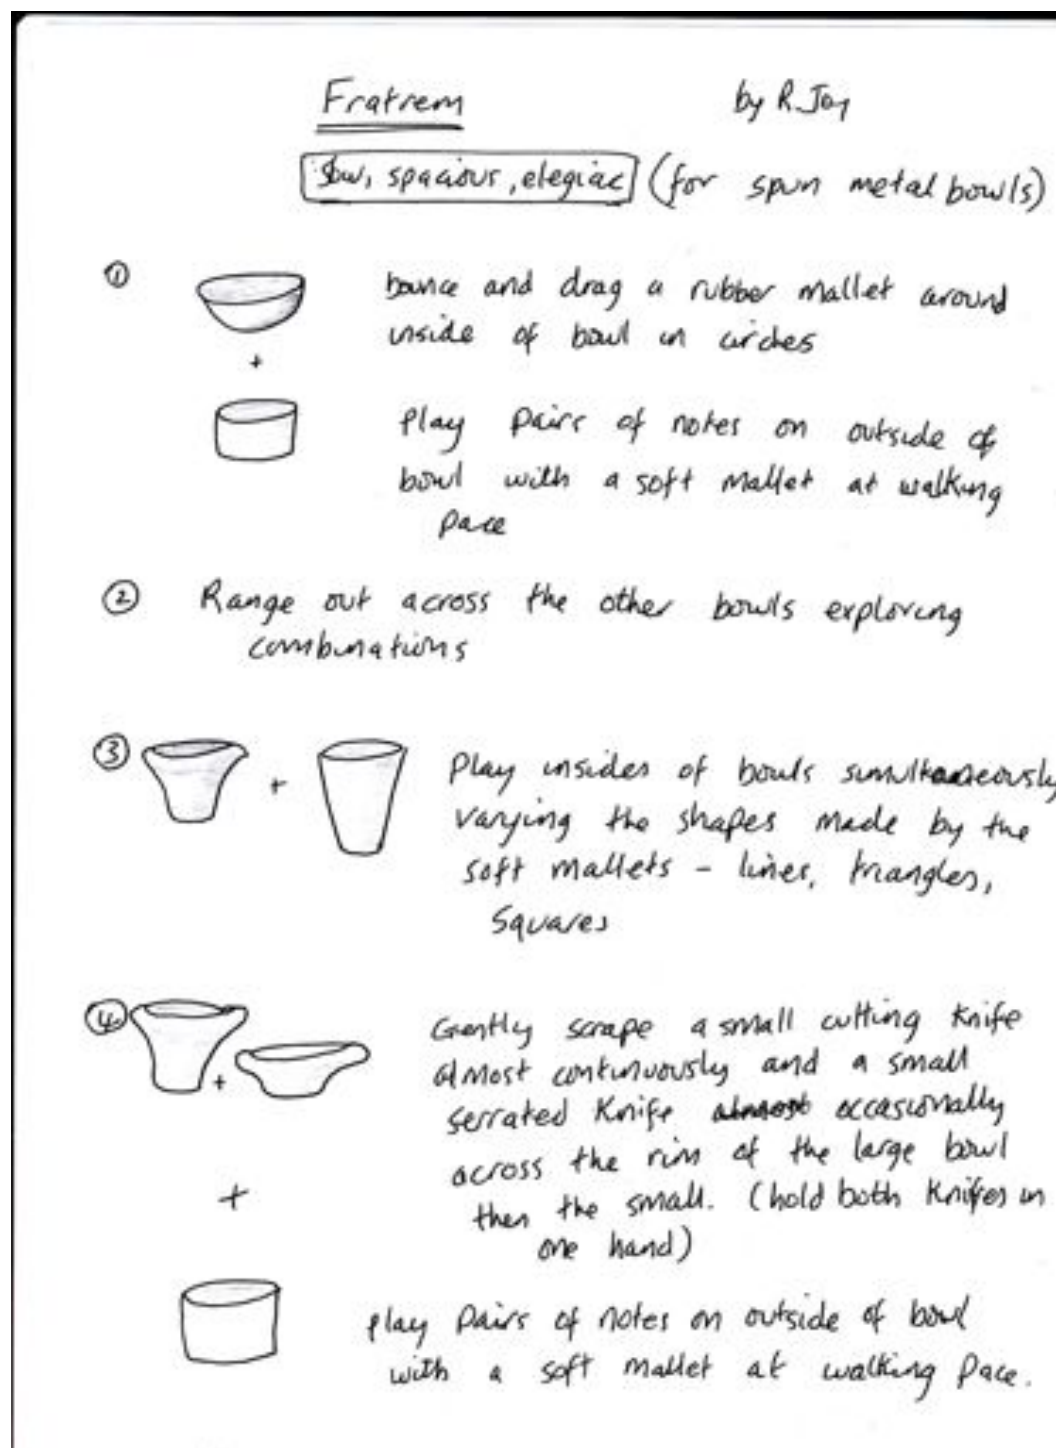 Fratrem by R. Jay
Slow, spacious, elegiac (for spun metal bowls)
① bounce and drag a rubber mallet around
inside of bowl in circles
+
Play pairs of notes on outside of
bowl with a soft mallet at walking
pace
② Range out across the other bowls exploring
combinations
③ + Play insides of bowls simultaneously
varying the shapes made by the
soft mallets - lines, triangles,
squares
④ Gently scrape a small cutting knife
almost continuously and a small
+ serrated knife occasionally
across the rim of the large bowl
+ then the small. (hold both knifes in
one hand)
play pairs of notes on outside of bowl
with a soft mallet at walking pace.